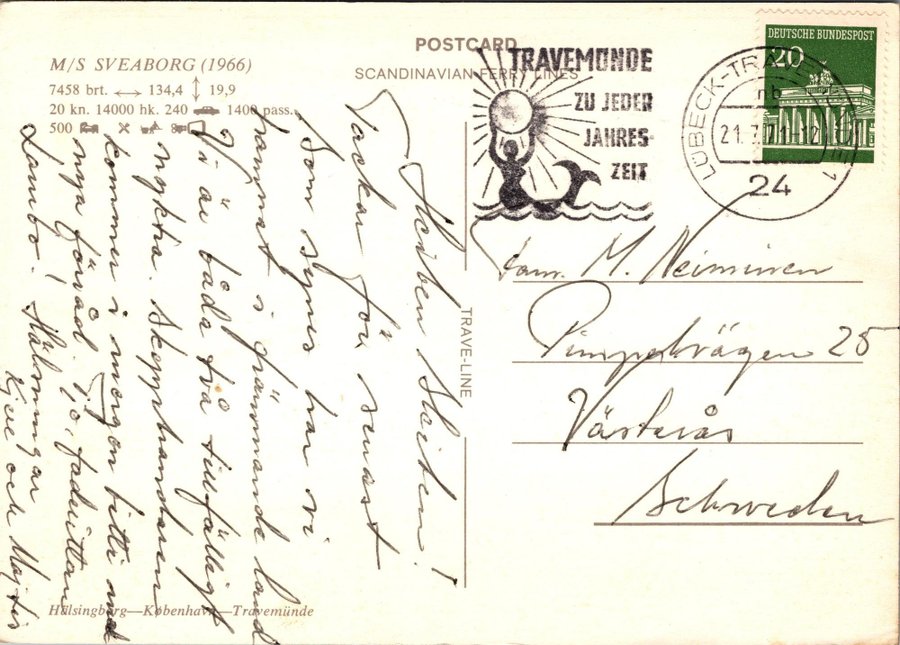 M/S SVEABORG (1966)
7458 brt. ↔ 134,4 ↕ 19,9
20 kn. 14000 hk. 240 1400 pass.
500
POSTCARD
SCANDINAVIAN FERRY LINES
TRAVEMÜNDE
ZU JEDER
JAHRES-
ZEIT
DEUTSCHE BUNDESPOST
20
LÜBECK-TRAVEMÜNDE 1
nb
21.7.71-12
24
Fam. M. Neiminen
Västerås
Schweden
TRAVE-LINE
Tackar för senast
Som synes har vi
hamnat i främmande land
Vi är båda två tillfälligt
nyktra. Skeppshandlaren
kommer i morgon bitti med
nya förråd.
Hälsningar
och
Hälsingborg—København—Travemünde